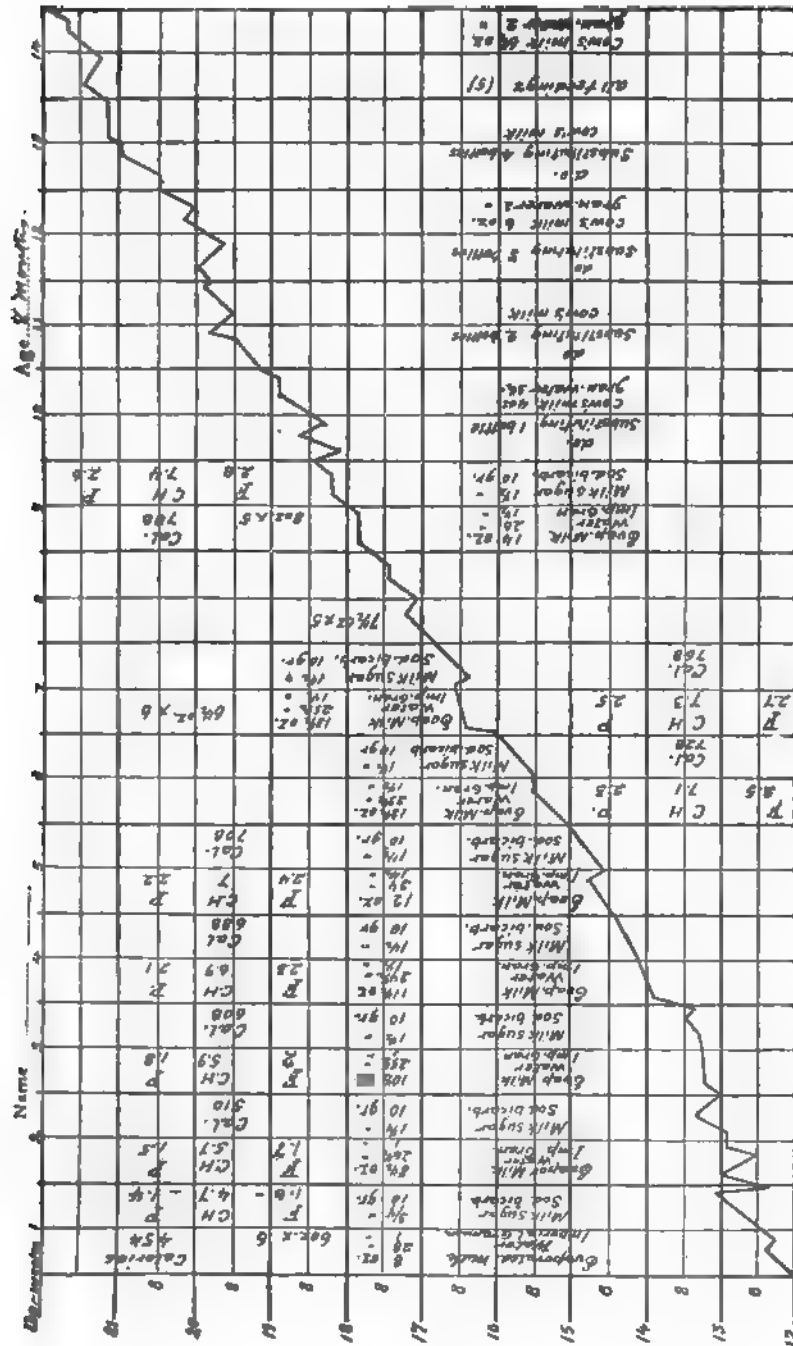 Name
Age
Months.
1
2
3
4
5
6
7
8
9
10
11
12
13
14
21
8
20
8
19
8
18
8
17
8
16
8
15
8
14
8
13
8
12
Evaporated milk 8 oz.
Water 28 "
Imperial Granum 1 "
Milk Sugar 3/4 "
Sod bicarb 10 gr.
6 oz. x 6
Calories
454
F CH P
1.6 - 4.7 - 1.4
Evapor Milk 8½ oz.
Water
Imp Gran 1 "
Milk sugar 1¼ "
Sod bicarb. 10 gr.
F CH P
1.7 5.7 1.5
Cal.
510
Evap. Milk
Water 25½
Imp Gran
Milk sugar 1½ "
Sod bicarb. 10 gr.
F CH P
5.9 1.8
Cal.
608
Evap. Milk 11½ oz
Water 24½ "
Imp. Gran. 1½ "
Milk sugar 1½ "
Sod bicarb. 10 gr
F CH P
2.3 6.9 2.1
Cal
688
Evap. Milk 12 oz.
Water 24 "
Imp. Gran 1½ "
Milk sugar 1½ "
Sod. bicarb. 10 gr.
F CH P
2.4 7 2.2
Cal.
708
Evap. Milk 12½ oz.
Water 23½ "
Imp. Gran. 1½ "
Milk sugar 1½ "
Sod. bicarb 10 gr
F CH P.
2.5 7.1 2.3
Cal.
728
Evap. Milk 13½ oz.
Water 25½ "
Imp. Gran. 1½ "
Milk Sugar 1½ "
Sod. bicarb. 10 gr.
6½ oz. x 6
F CH P
2.7 7.3 2.5
Cal.
768
7½ oz x 5
Evap. Milk 14 oz.
Water 26 "
Imp. Gran 1½ "
Milk Sugar 1½ "
Sod. bicarb. 10 gr.
8 oz. x 5
Cal.
788
F CH P
2.8 7.4 2.6
do.
Substituting 1 bottle
Cow's milk 4 oz.
gran. water
do
Substituting 2 bottles
Cow's milk
do
Substituting 3 bottles
Cow's milk 6 oz.
gran. water 2 "
do.
Substituting 4 bottles
Cow's milk
all feedings (5)
Cow's milk
gran. water 2 "